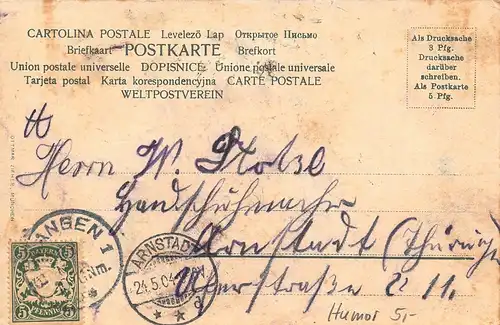 CARTOLINA POSTALE Levelező Lap Открытое Письмо
Briefkaart POSTKARTE Brefkort
Union postale universelle DOPISNICE Unione postale universale
Tarjeta postal Karta korespondencyjna CARTE POSTALE
WELTPOSTVEREIN
Als Drucksache
3 Pfg.
Drucksache
darüber
schreiben.
Als Postkarte
5 Pfg.
Herrn W.
Handschuhmacher
Arnstadt (Thüring
11.
ANGEN 1
Nm.
ARNSTADT
24.5.04
a
BAYERN
5 5
PFENNIG
Humor 5,-